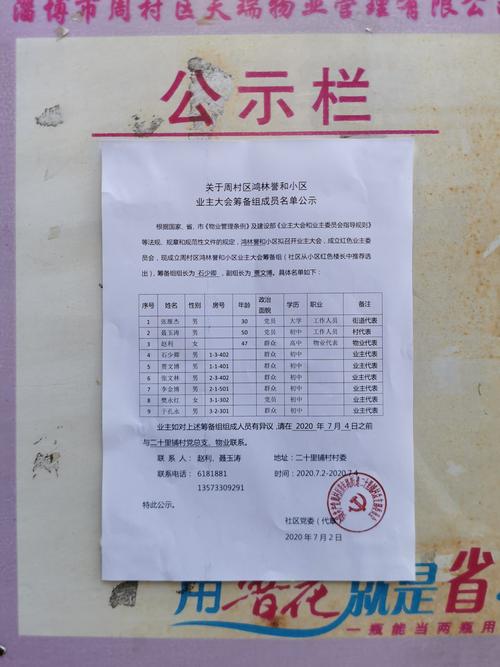 淄博市周村区天瑞物业管理有限公
公示栏
关于周村区鸿林誉和小区
业主大会筹备组成员名单公示
根据国家、省、市《物业管理条例》及建设部《业主大会和业主委员会指导规则》
等法规、规章和规范性文件的规定，鸿林誉和小区拟召开业主大会，成立红色业主委
员会，现成立周村区鸿林誉和小区业主大会筹备组（社区从小区红色楼长中推荐选
出），筹备组组长为 石少卿 ，副组长为 贾文博。具体名单如下：
序号 姓名 性别 房号 年龄 政治面貌 学历 职业 备注
1 张雁杰 男 30 党员 大学 工作人员 街道代表
2 聂玉涛 男 50 党员 初中 工作人员 村代表
3 赵利 女 47 群众 高中 物业代表 物业代表
4 石少卿 男 1-3-402 群众 初中 业主代表
5 贾文博 男 1-1-401 群众 初中 业主代表
6 张文林 男 2-3-402 群众 初中 业主代表
7 李金博 男 2-1-501 群众 初中 业主代表
8 樊永红 女 3-1-302 党员 初中 业主代表
9 于孔永 男 3-2-301 群众 初中 业主代表
业主如对上述筹备组组成人员有异议，请在 2020 年 7 月 4 日之前
与二十里铺村党总支、物业联系。
联 系 人： 赵利、聂玉涛 地址：二十里铺村村委
联系电话： 6181881 时间：2020.7.2-2020.7.4
13573309291
特此公示。
社区党委（代章）
2020 年 7 月 2 日
用 就是省
一瓶能当两瓶用